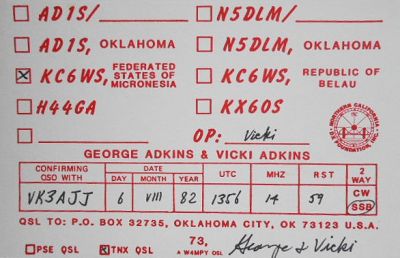 AD1S/ N5DLM/
AD1S, OKLAHOMA N5DLM, OKLAHOMA
KC6WS, FEDERATED STATES OF MICRONESIA KC6WS, REPUBLIC OF BELAU
H44GA KX6OS
OP: Vicki
NORTHERN CALIFORNIA DX FOUNDATION, INC.
GEORGE ADKINS & VICKI ADKINS
CONFIRMING QSO WITH DATE UTC MHZ RST 2 WAY
DAY MONTH YEAR
VK3AJJ 6 VIII 82 1356 14 59 CW SSB
QSL TO: P.O. BOX 32735, OKLAHOMA CITY, OK 73123 U.S.A.
PSE QSL TNX QSL 73, George & Vicki
A W4MPY QSL